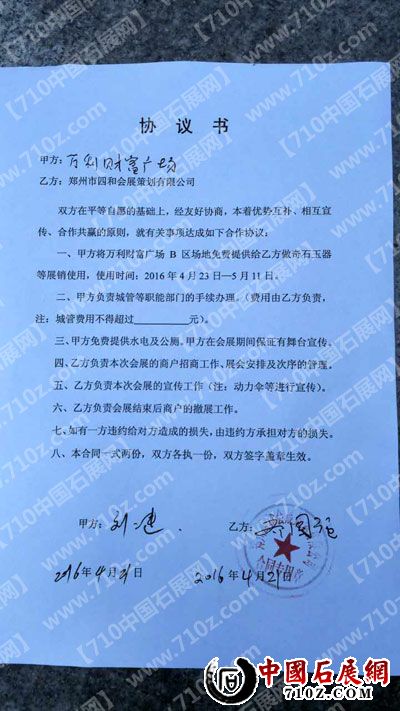 协 议 书
甲方：万利财富广场
乙方：郑州市四和会展策划有限公司
双方在平等自愿的基础上，经友好协商，本着优势互补、相互宣
传、合作共赢的原则，就有关事项达成如下合作协议：
一、甲方将万利财富广场 B 区场地免费提供给乙方做奇石玉器
等展销使用，使用时间：2016 年 4 月 23 日—5 月 11 日。
二、甲方负责城管等职能部门的手续办理。（费用由乙方负责，
注：城管费用不得超过________元）。
三、甲方免费提供水电及公厕。甲方在会展期间保证有舞台宣传。
四、乙方负责本次会展的商户招商工作、展会安排及次序的管理。
五、乙方负责本次会展的宣传工作（注：动力伞等进行宣传）。
六、乙方负责会展结束后商户的撤展工作。
七、如有一方违约给对方造成的损失，由违约方承担对方的损失。
八、本合同一式两份，双方各执一份，双方签字盖章生效。
甲方： 乙方：
2016年4月21日 2016年4月21日
合同专用
【710中国石展网】
www.710z.com
中國石展網
710Z.COM